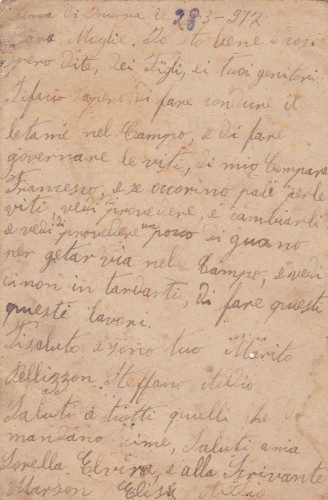 Zona di Guerra il 28-3-917
Cara Moglie. Io sto bene e così
spero di te, dei Figli, ei tuoi genitori
Tifacio sapere di fare condure il
letame nel Campo, e di fare
governare le viti, di mio Compare
Francesco, e se occorino pali perle
viti vedi di provedere, e cambiarli
e vedi di provedere un poco di guano
per getar via nel Campo, e vedi
di non in tardanti, di fare questi
questi lavori.
Tisaluto e sono tuo Marito
Pellizzon Steffano Adio
Saluti á tiotti quelli che do
mandano dime, Saluti amia
Sorella Elvira, e alla Scrivante
Marson Elisa